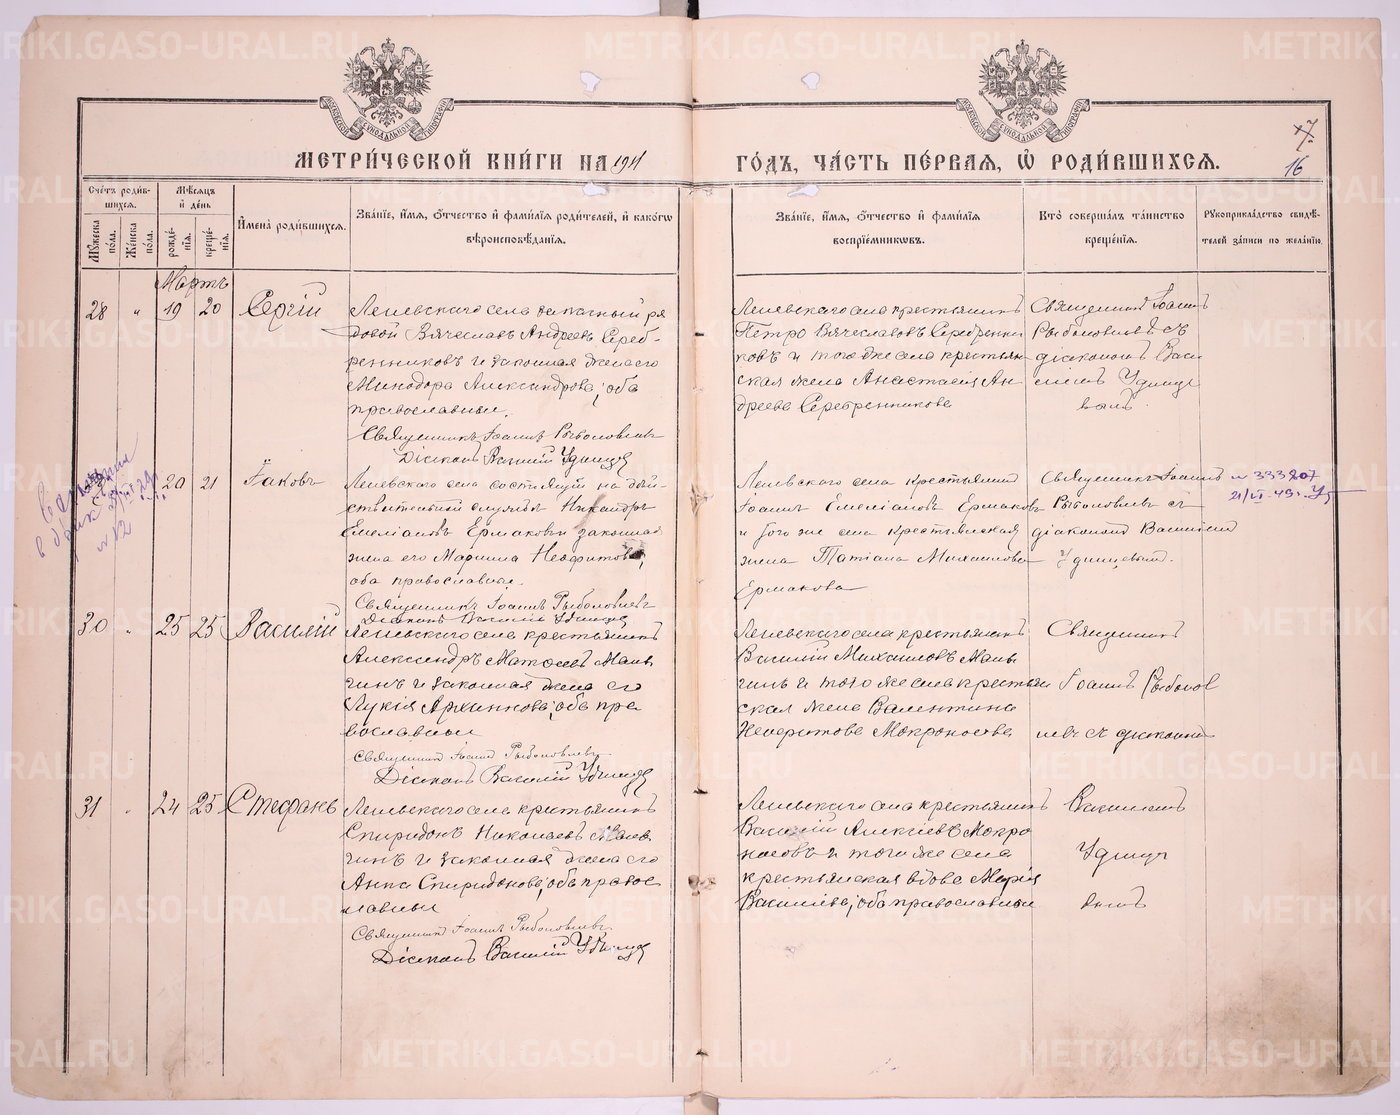 МЕТРИ́ЧЕСКОЙ КНИ́ГИ НА 1911
ГО́ДЪ, ЧА́СТЬ ПЕ́РВАЯ, Ѡ҆ РОДИ́ВШИХСѦ.
17
16
Сче́тъ роди́в-
шихсѧ.
Мꙋ́жеска по́ла.
Же́нска по́ла.
Мѣ́сѧцъ
и҆ де́нь
рожде́-
нїѧ.
креще́-
нїѧ.
И҆мена̀ роди́вшихсѧ.
Зва́нїе, и҆́мѧ, ѻ҆́тчество и҆ фами́лїѧ роди́телей, и҆ како́гѡ
вѣроисповѣ́данїѧ.
Зва́нїе, и҆́мѧ, ѻ҆́тчество и҆ фами́лїѧ
воспрїе́мникѡвъ.
Кто̀ соверша́лъ та́инство
креще́нїѧ.
Рꙋкоприкла́дство свидѣ́-
телей за́писи по жела́нїю.
Мартъ
28 " 19 20 Сергій
Леневскаго села запасный ря
довой Вячеславъ Андреевъ Сереб-
ренниковъ и законная жена его
Минодора Александрова, оба
православные.
Священникъ Іоаннъ Рыболовлевъ
Діаконъ Василій Удинцев
Леневскаго села крестьянинъ
Петръ Вячеславовъ Серебренни
ковъ и того же села крестьян
ская жена Анастасія Ан
дреева Серебренникова
Священникъ Іоаннъ
Рыболовлевъ съ
діакономъ Васи
ліемъ Удинце
вымъ.
20 21 Іаковъ
Леневскаго села состоящій на дѣй-
ствительной службѣ Никандръ
Емеліановъ Ермаковъ законная
жена его Марина Неофитова,
оба православные.
Священникъ Іоаннъ Рыболовлевъ
Діаконъ Василій Удинцев
Леневскаго села крестьянинъ
Іоаннъ Емеліановъ Ермаковъ
и того же села крестьянская
жена Татіана Михаилова
Ермакова
Священникъ Іоаннъ
Рыболовлевъ съ
діакономъ Василіемъ
Удинцевымъ.
№ 333207
21/VI-49г.
№ 12
30 " 25 25 Василій
Леневскаго села крестьянинъ
Александръ Матѳеевъ Мань
гинъ и законная жена его
Лукія Архиппова, оба пра
вославные
Священникъ Іоаннъ Рыболовлевъ
Діаконъ Василій Удинцев
Леневскаго села крестьянинъ
Василій Михаиловъ Мань
гинъ и того же села крестьян
ская жена Валентина
Неофитова Мокроносова
Священникъ
Іоаннъ Рыболов
левъ съ діакономъ
31 " 24 25 Стефанъ
Леневскаго села крестьянинъ
Спиридонъ Николаевъ Мань
гинъ и законная жена его
Анна Спиридонова, оба правос
лавные
Священникъ Іоаннъ Рыболовлевъ
Діаконъ Василій Удинцев
Леневскаго села крестьянинъ
Василій Алексіевъ Мокро
носовъ и того же села
крестьянская вдова Марія
Васильева, оба православные
Василіемъ
Удинце
вымъ
METRIKI.GASO-URAL.RU